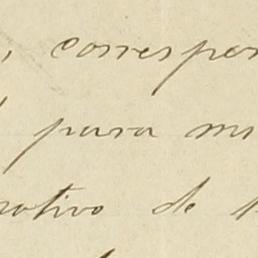 , correspon
para mi
rativo de